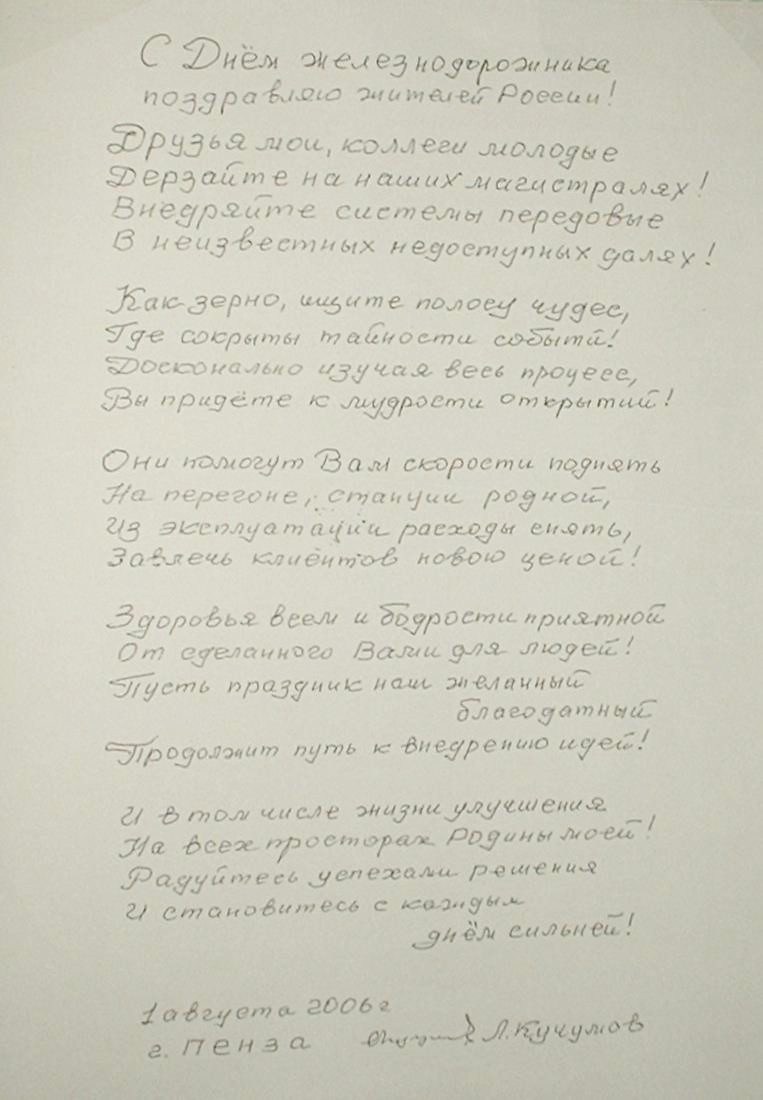 С Днём железнодорожника
поздравляю жителей России!
Друзья мои, коллеги молодые
Дерзайте на наших магистралях!
Внедряйте системы передовые
В неизвестных недоступных далях!
Как зерно, ищите полосу чудес,
Где сокрыты тайности событий!
Досконально изучая весь процесс,
Вы придёте к мудрости открытий!
Они помогут Вам скорости поднять
На перегоне, станции родной,
Из эксплуатации расходы снять,
Завлечь клиентов новою ценой!
Здоровья всем и бодрости приятной
От сделанного Вами для людей!
Пусть праздник наш желанный
благодатный
Продолжит путь к внедрению идей!
И в том числе жизни улучшения
На всех просторах Родины моей!
Радуйтесь успехами решения
И становитесь с каждым
днём сильней!
1 августа 2006 г.
г. Пенза Л. Кучумов